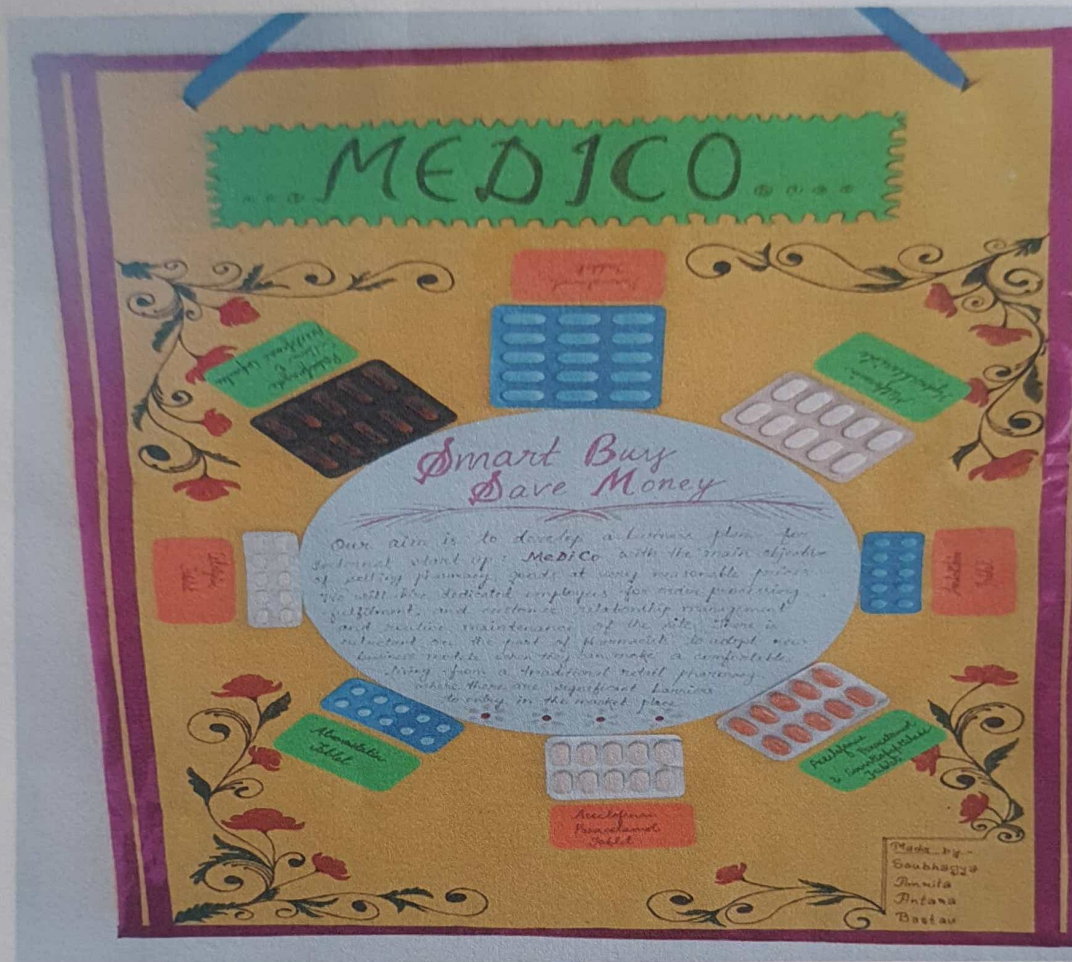 MEDICO
Smart Buy
Save Money
Our aim is to develop a business plan for
Internet start up: MeDiCo with the main objective
of selling pharmacy goods at very reasonable prices
We will hire dedicated employees for order processing
fulfilment, and customer relationship management
and routine maintenance of the site. There is
reluctant on the part of Pharmacists to adopt new
business models when they can make a comfortable
living from a traditional retail pharmacy
where there are significant barriers
to entry in the market place
Paracetamol
Tablet
Metformin
Hydrochloride
Tablet
Tablet
Atorvastatin
Tablet
Paracetamol
Tablet
Paracetamol
Tablet
Made by-
Saubhagya